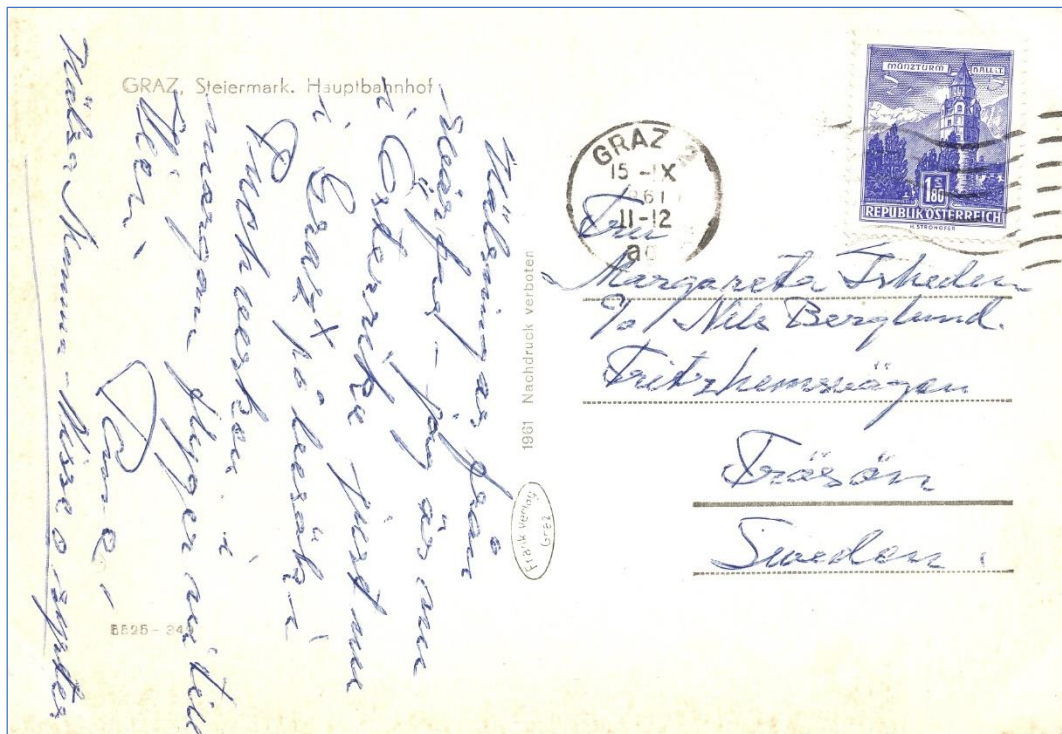 GRAZ, Steiermark. Hauptbahnhof
Hälsningar från
- jag är nu
i Österrike just nu
i Graz + på besök i
Puchwerken i
morgon flyger vi till
Wien.
Hälsa Mamma - Nisse o syster
B525 - 349
1961 Nachdruck verboten
Frank Verlag
Graz
GRAZ 2
15 -IX
61
11-12
MÜNZTURM HALL i.T.
S
1.80
REPUBLIK ÖSTERREICH
H. STROHOFER
Fru
Margareta
c/o Nils Berglund.
Fritzhemsvägen
Frösön
Sweden.